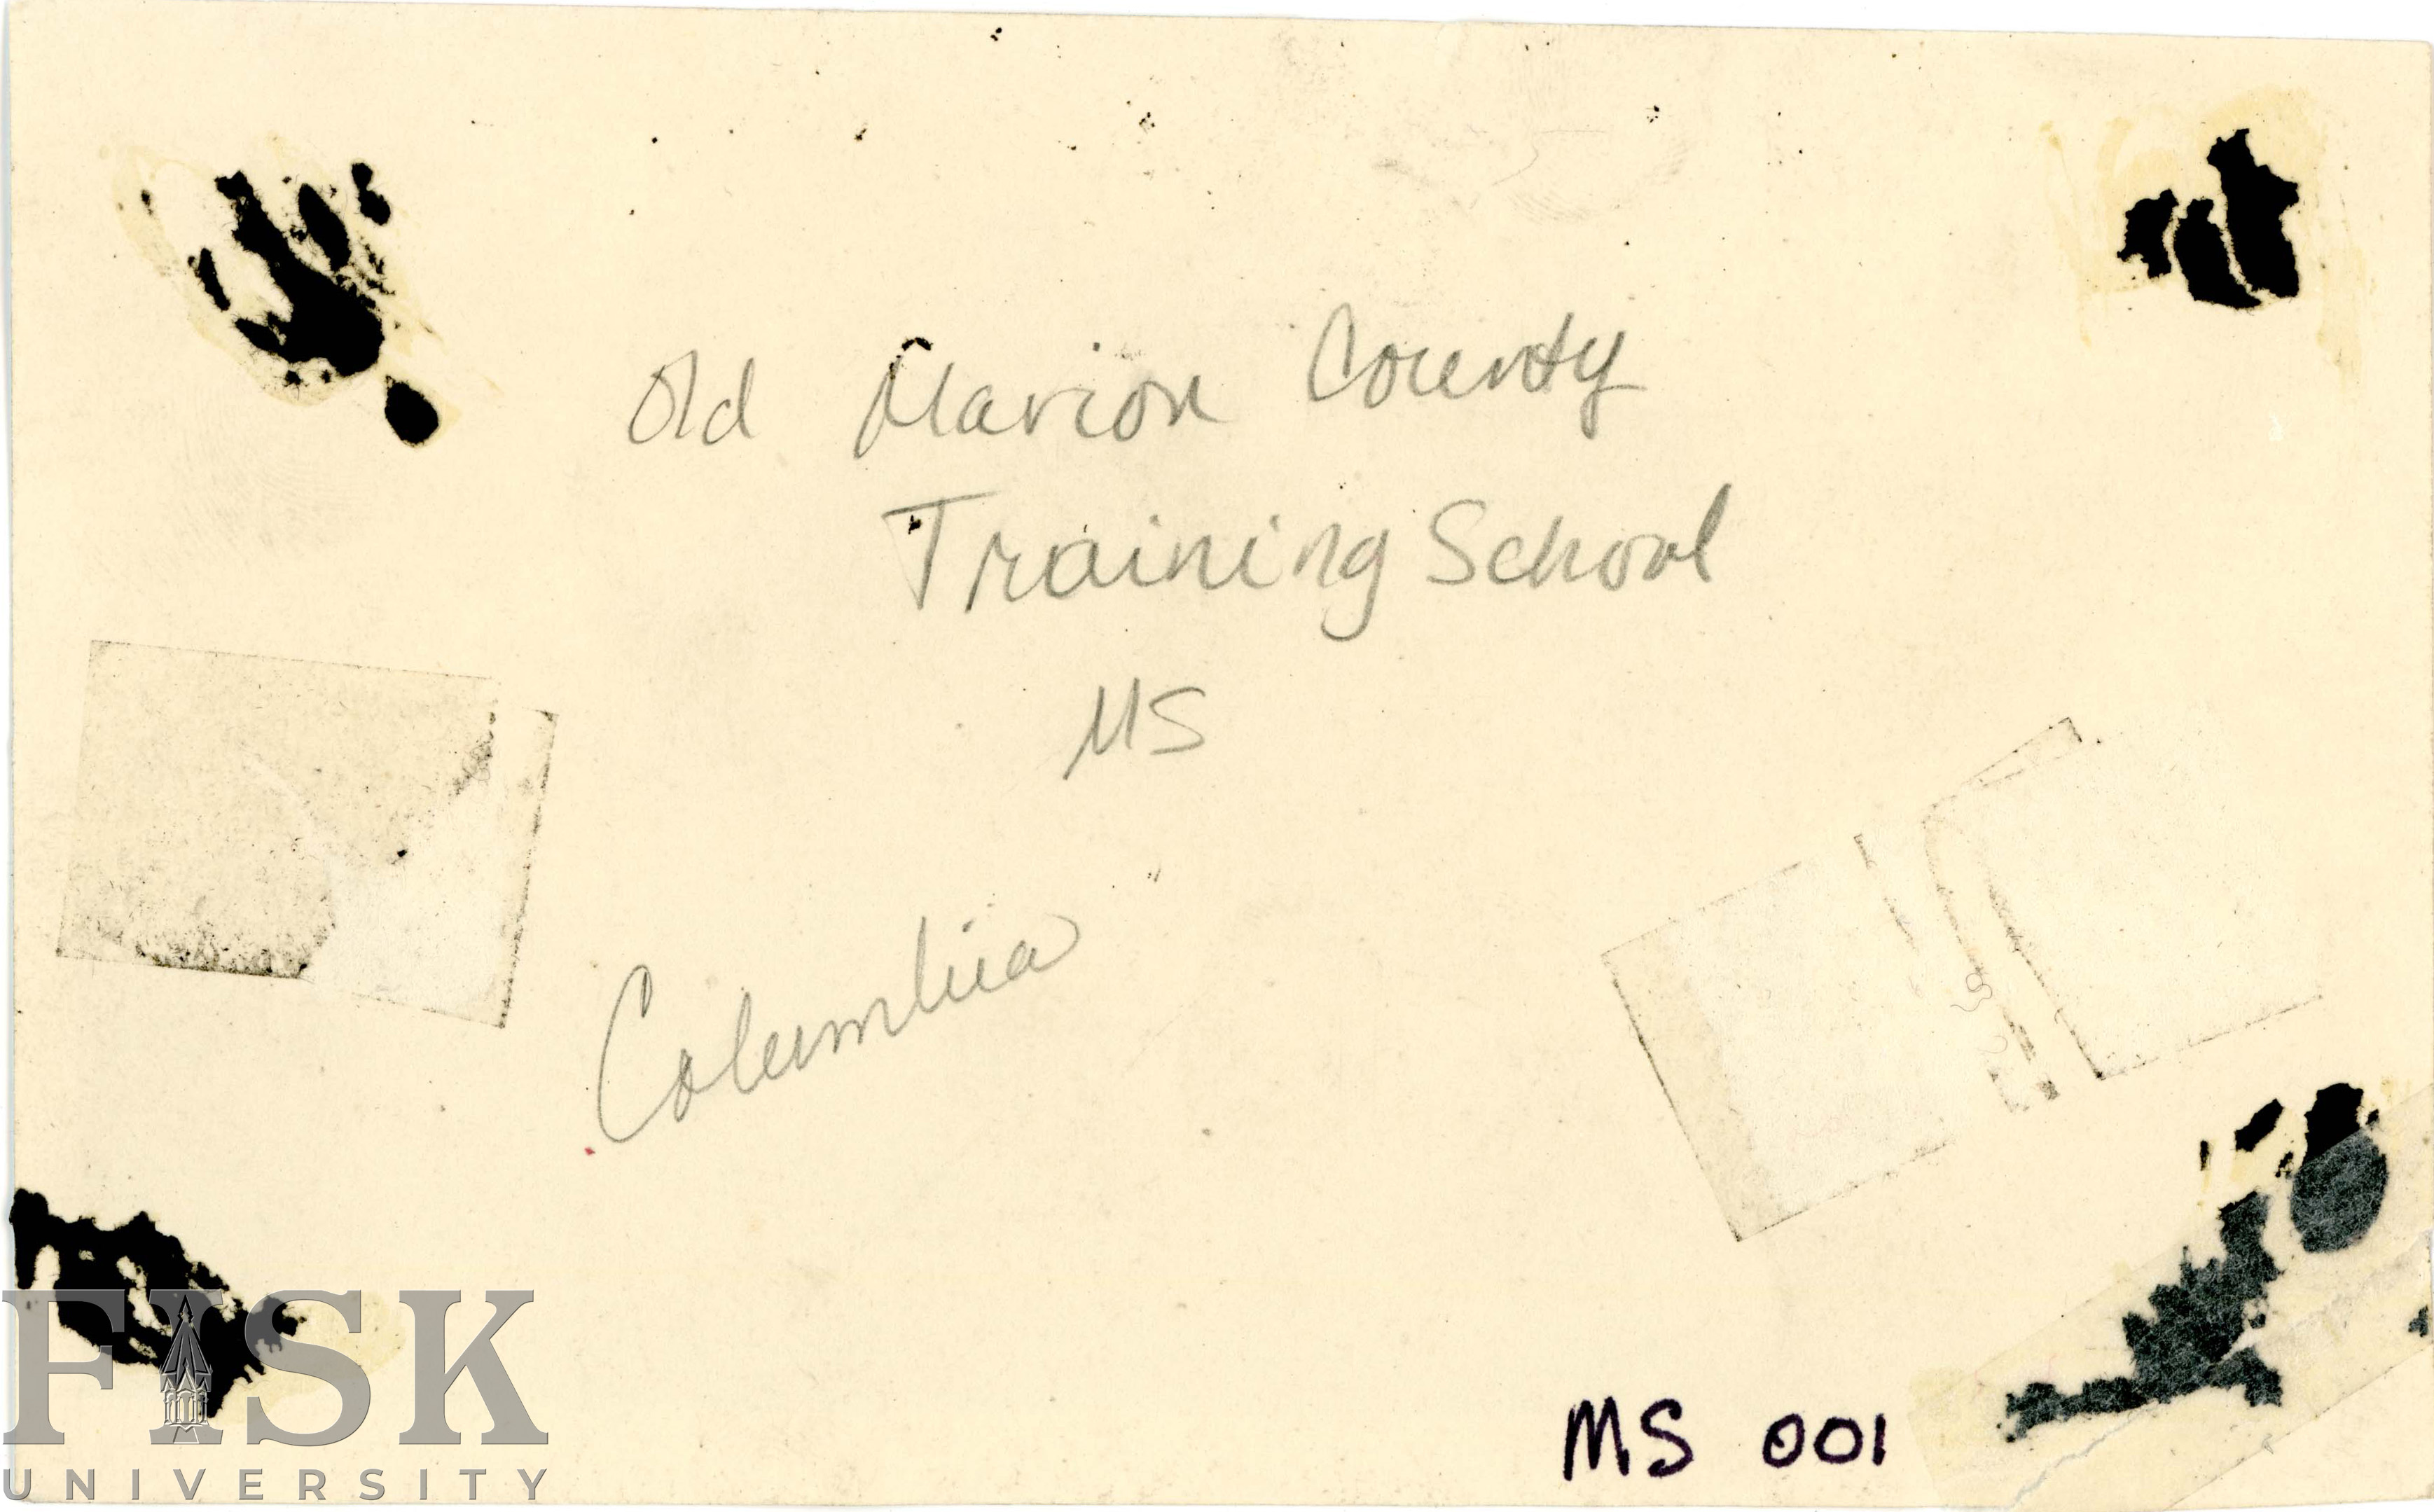 Old Marion County
Training School
MS
Columbia
MS 001
FISK
UNIVERSITY